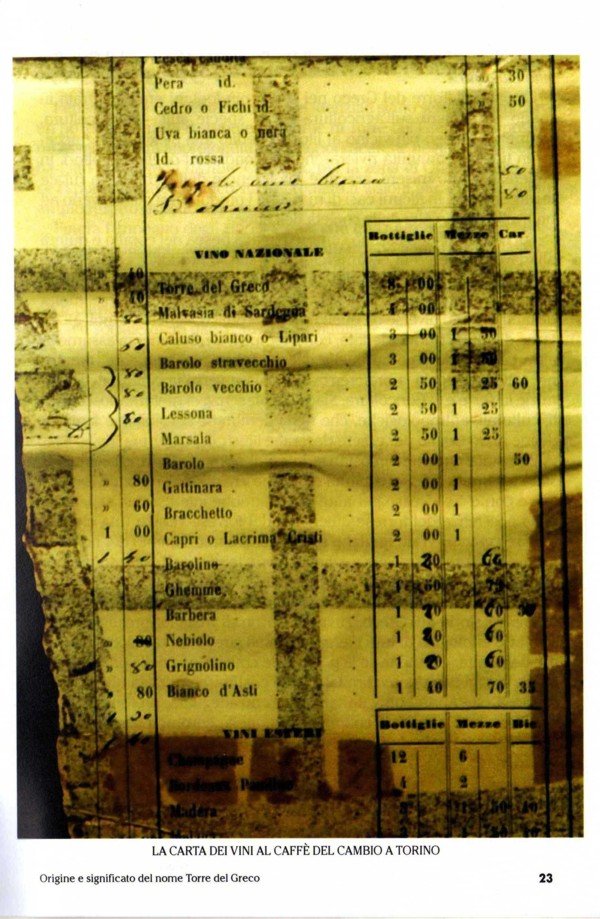 Pera id. 30
Cedro o Fichi id. 50
Uva bianca o nera
Id. rossa
50
80
Bottiglie Mezze Car.
VINO NAZIONALE
40 Torre del Greco 8 00
40 Malvasia di Sardegna 4 00
80 Caluso bianco o Lipari 3 00 1 50
60 Barolo stravecchio 3 00 1 50
80 Barolo vecchio 2 50 1 25 60
80 Lessona 2 50 1 25
80 Marsala 2 50 1 25
Barolo 2 00 1 50
» 80 Gattinara 2 00 1
» 60 Bracchetto 2 00 1
1 00 Capri o Lacrima Cristi 2 00 1
Barolino 1 20 60
Ghemme 1 50 75
Barbera 1 20 60
» 80 Nebiolo 1 20 60
» 80 Grignolino 1 20 60
» 80 Bianco d'Asti 1 40 70 35
VINI ESTERI
Bottiglie Mezze Bic.
Champagne 12 6
Bordeaux 4 2
Madera 3 1 50 40
LA CARTA DEI VINI AL CAFFÈ DEL CAMBIO A TORINO
Origine e significato del nome Torre del Greco 23